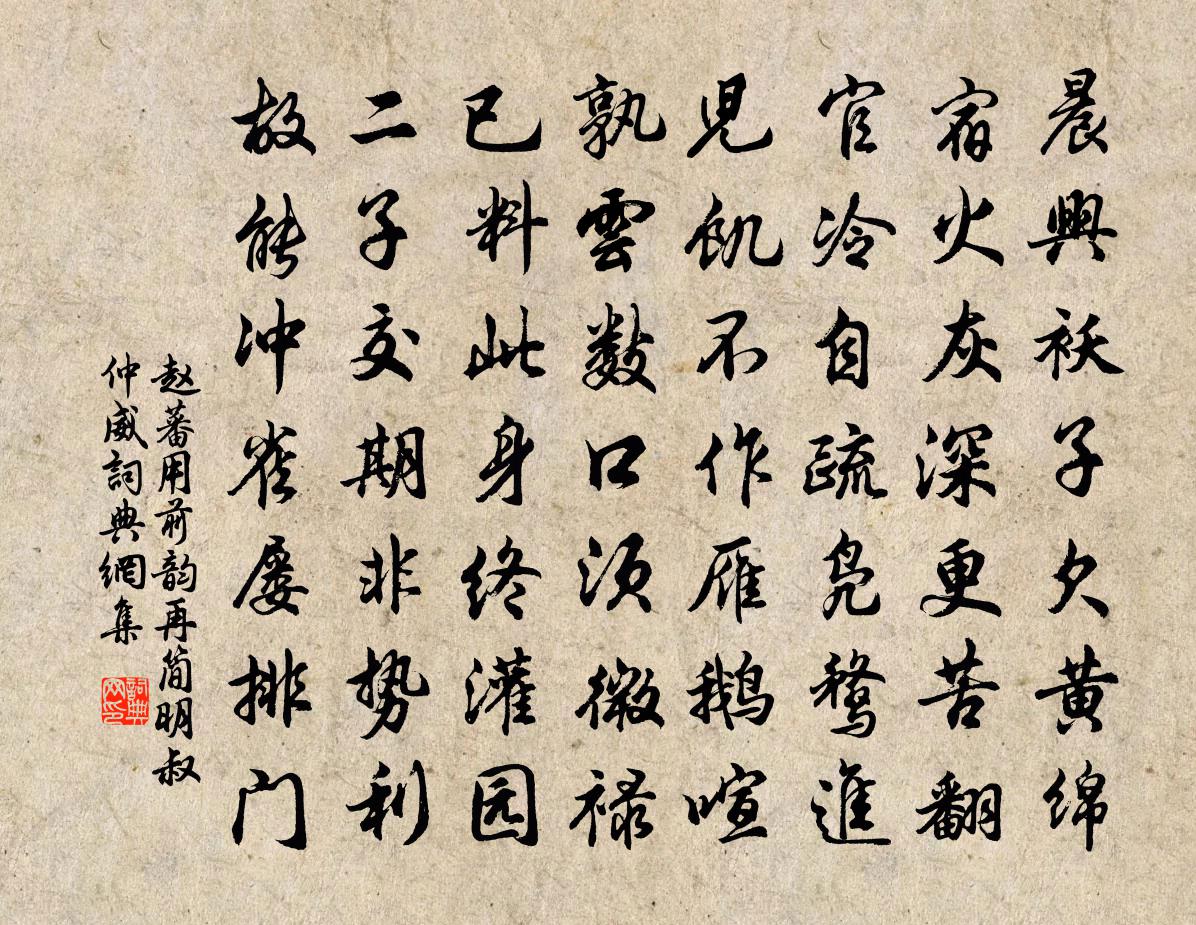 晨興袄子欠黄绵
宿火灰深更苦翻
官冷自疏凫鹜進
児饥不作雁鹅喧
孰雲数口须微禄
已料此身终灌园
二子交期非势利
故能冲雀屡排门
赵蕃用前韵再简明叔
仲威詞典網集
詞典网印